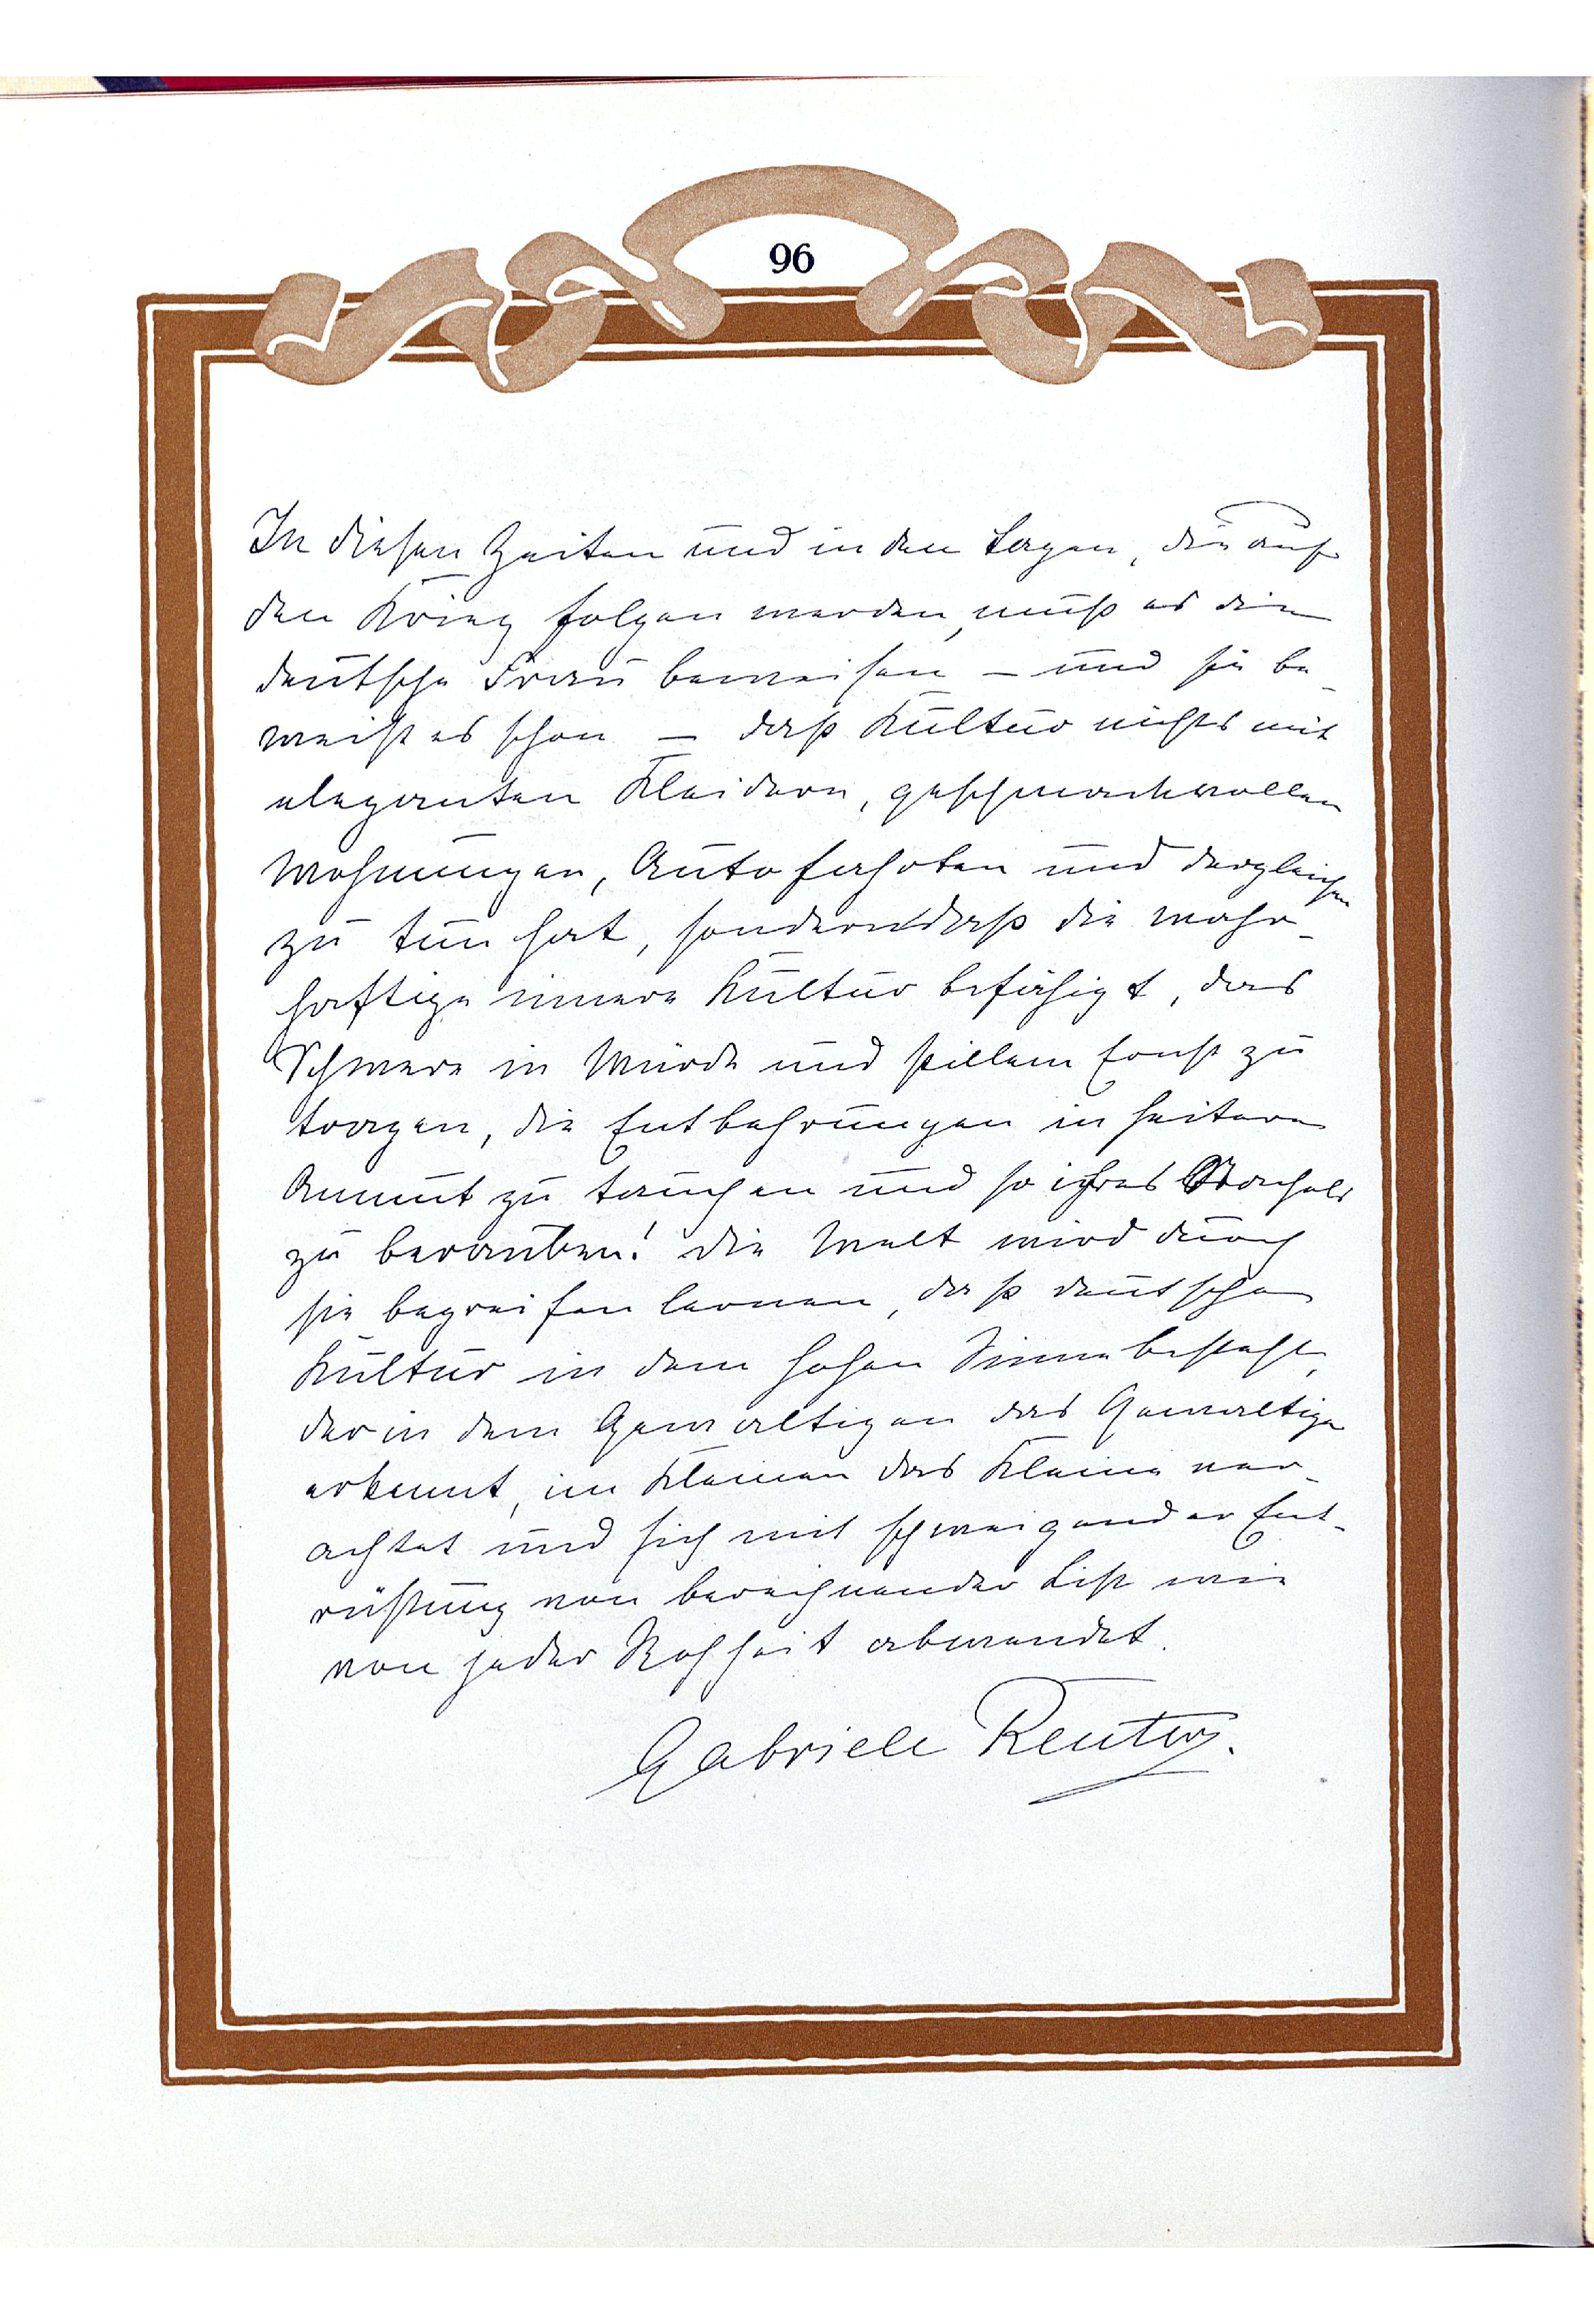 96
In diesen Zeiten und in den Tagen, die auf
den Krieg folgen werden, muß es die
deutsche Frau beweisen – und sie be-
weist es schon – daß Kultur nichts mit
eleganten Kleidern, geschmackvollen
Wohnungen, Autofahrten und dergleichen
zu tun hat, sondern daß die wahr-
haftige innere Kultur befähigt, das
Schwere in Würde und stillem Ernst zu
tragen, die Entbehrungen in heitere
Anmut zu tauchen und so ihres Stachels
zu berauben! Die Welt wird durch
sie begreifen lernen, daß deutsche
Kultur in dem hohen Sinne besteht,
der in dem Gewaltigen das Gewaltige
erkennt, im Kleinen das Kleine ver-
achtet und sich mit schweigender Ent-
rüstung von berechnender List wie
von jeder Rohheit abwendet.
Gabriele Reuter.